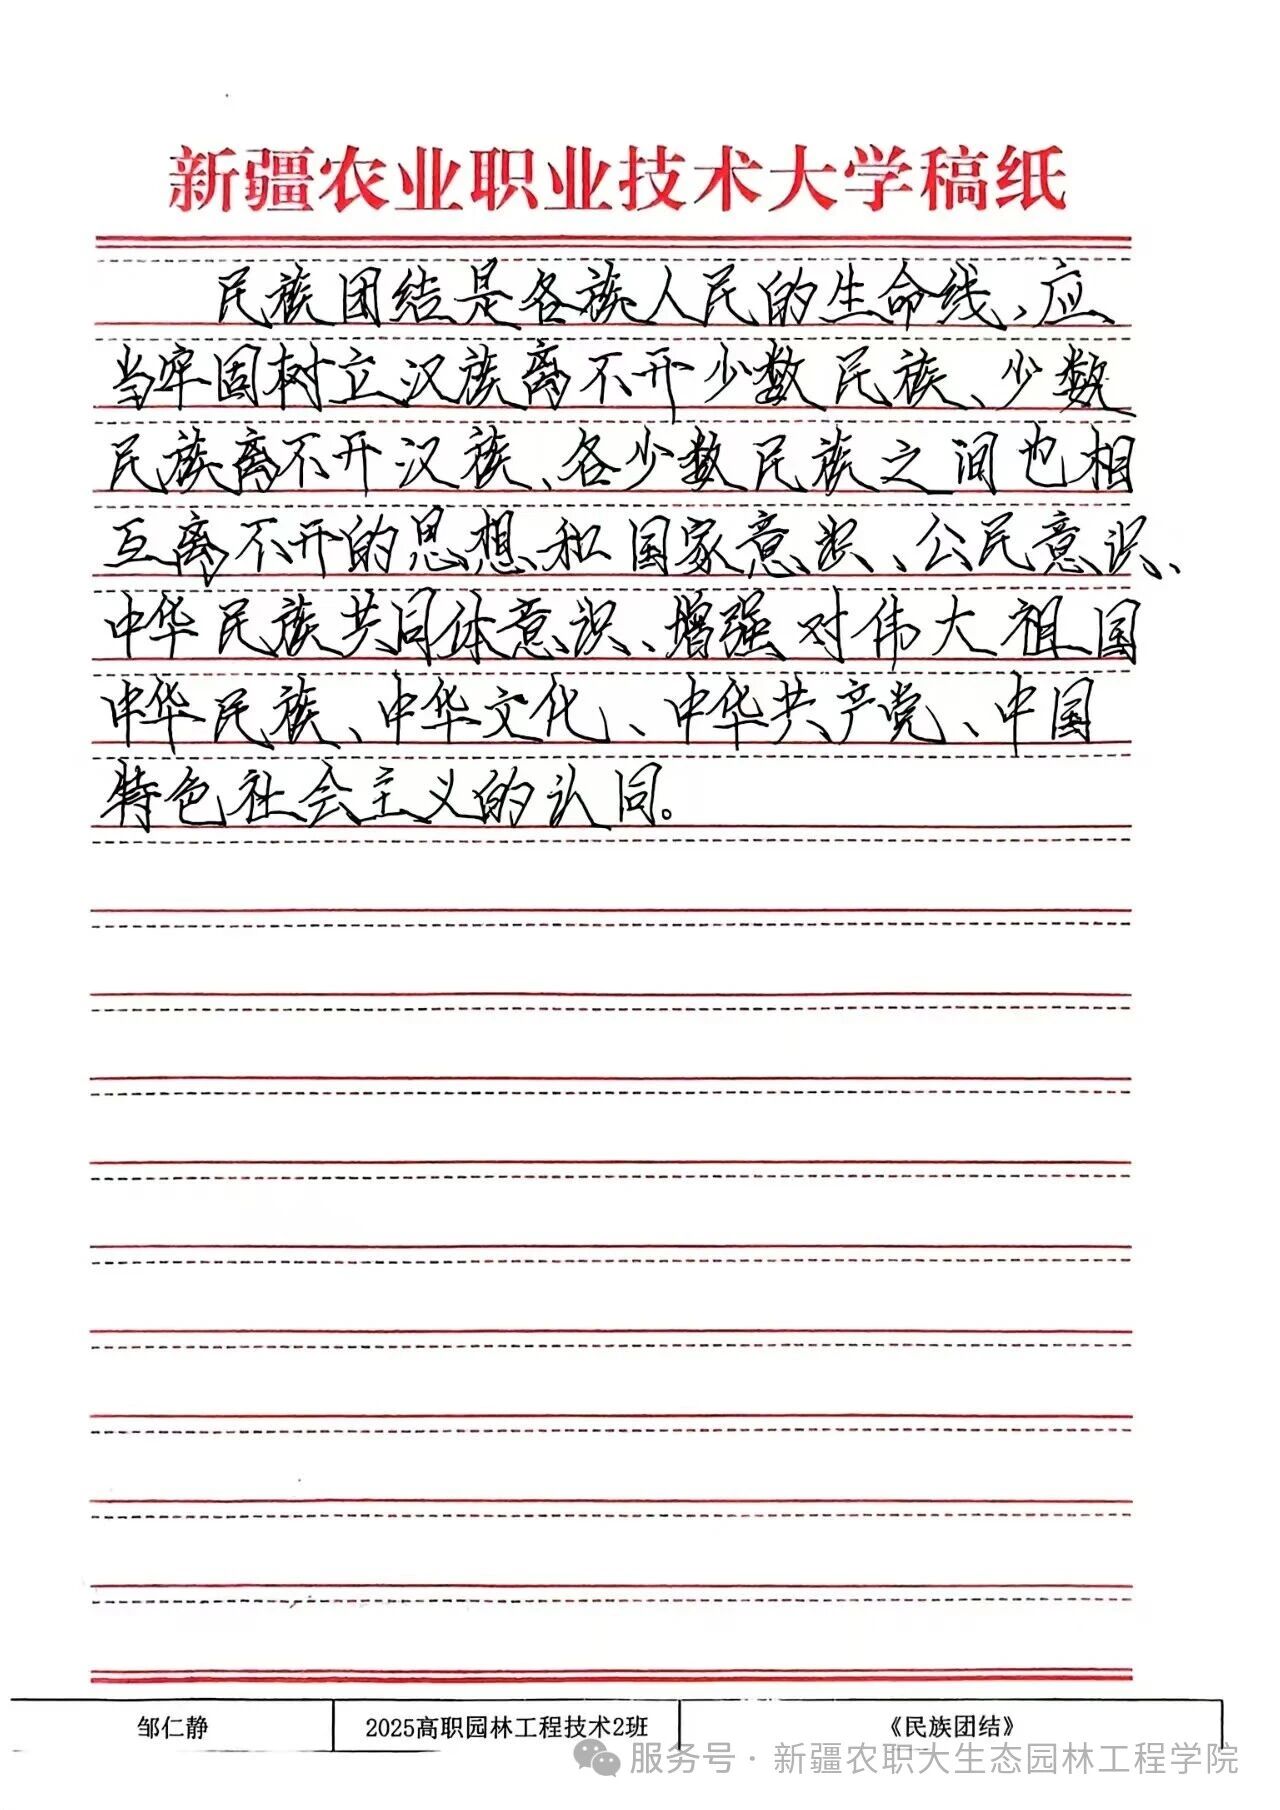 新疆农业职业技术大学稿纸
民族团结是各族人民的生命线、应
当牢固树立汉族离不开少数民族、少数
民族离不开汉族、各少数民族之间也相
互离不开的思想和国家意识、公民意识、
中华民族共同体意识、增强对伟大祖国
中华民族、中华文化、中华共产党、中国
特色社会主义的认同。
邹仁静 2025高职园林工程技术2班 《民族团结》
服务号·新疆农职大生态园林工程学院